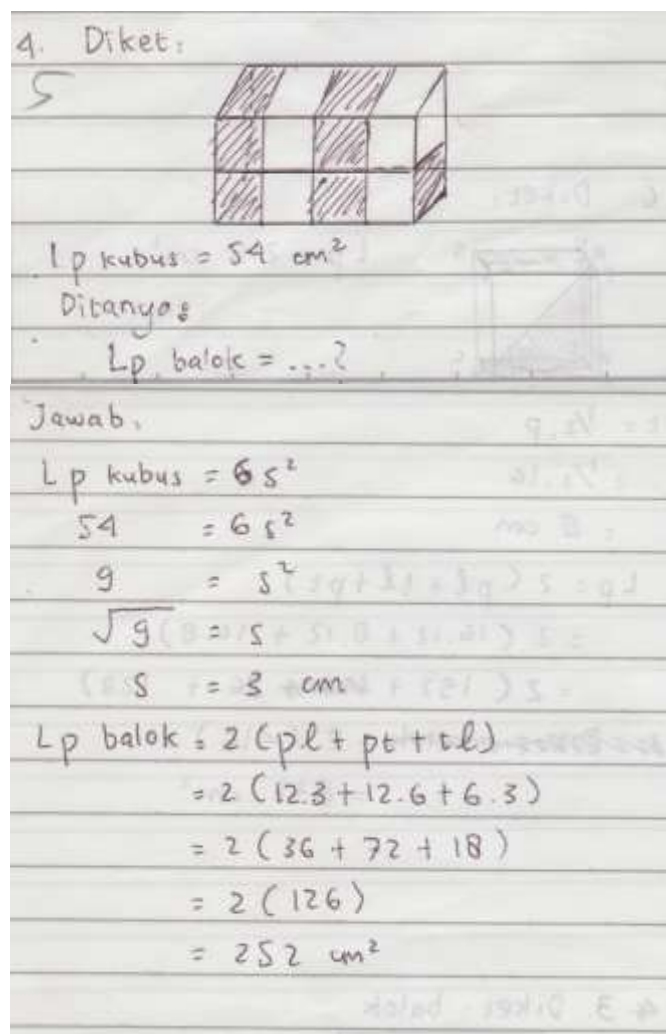 4. Diket:
5
Lp kubus = 54 cm²
Ditanya:
Lp balok = ...?
Jawab:
Lp kubus = 6 s²
54 = 6 s²
9 = s²
√9 = s
s = 3 cm
Lp balok = 2 (pl + pt + tl)
= 2 (12.3 + 12.6 + 6.3)
= 2 (36 + 72 + 18)
= 2 (126)
= 252 cm²